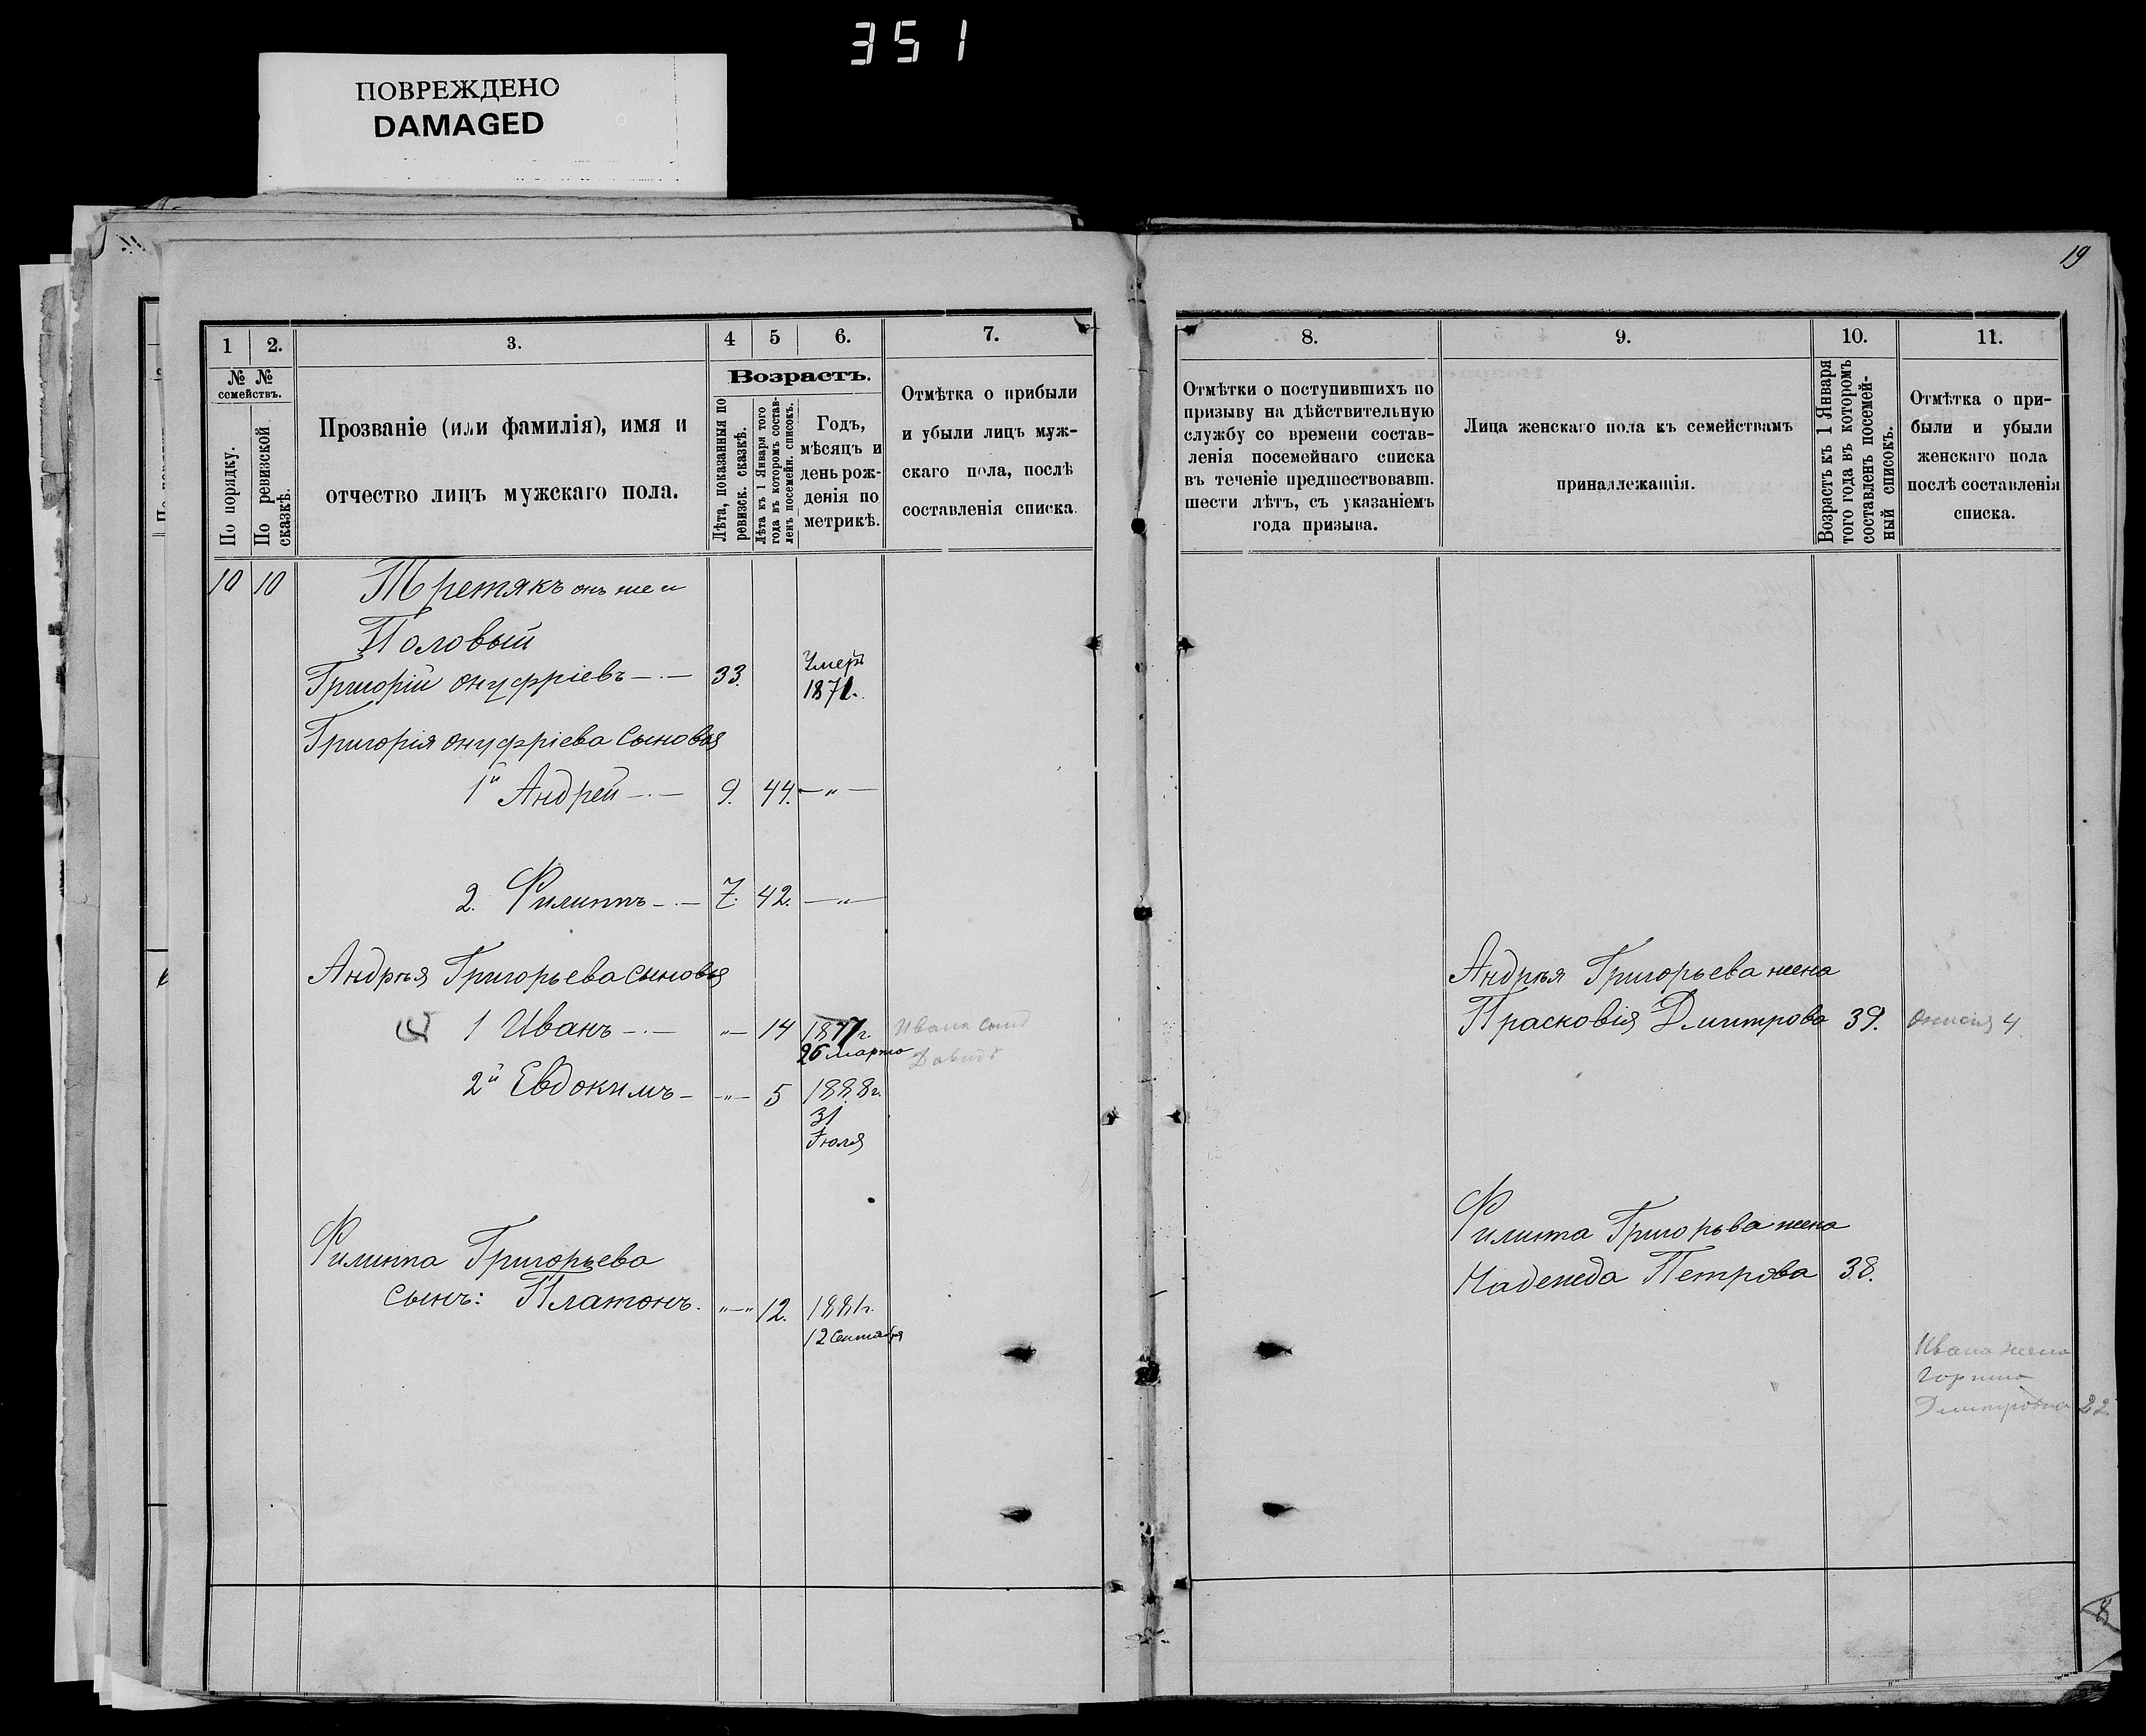 351
ПОВРЕЖДЕНО
DAMAGED
19
1 2. 3. 4 5 6. 7.
№ № семействъ.
По порядку.
По ревизской сказкѣ.
Прозваніе (или фамилія), имя и
отчество лицъ мужскаго пола.
Возрастъ.
Лѣта, показанныя по
ревизск. сказкѣ.
Лѣта къ 1 Января того
года въ которомъ состав-
ленъ посемейн. списокъ.
Годъ,
мѣсяцъ и
день рож-
денія по
метрикѣ.
Отмѣтка о прибыли
и убыли лицъ муж-
скаго пола, послѣ
составленія списка.
8. 9. 10. 11.
Отмѣтки о поступившихъ по
призыву на дѣйствительную
службу со времени состав-
ленія посемейнаго списка
въ теченіе предшествовавш.
шести лѣтъ, съ указаніемъ
года призыва.
Лица женскаго пола къ семействамъ
принадлежащія.
Возрастъ къ 1 Января
того года въ которомъ
составленъ посемей-
ный списокъ.
Отмѣтка о при-
были и убыли
женскаго пола
послѣ составленія
списка.
10 10 Третякъ онъ же и
Половый
Григорій Онуфріевъ 33. Умеръ
1871.
Григорія Онуфріева сыновья
1й Андрей 9. 44. — " —
2. Филиппъ 7. 42. — " —
Андрѣя Григорьева сыновья
1 Иванъ " 14 1877г.
25 марта
Ивана сынъ
Давидъ
2й Евдокимъ " 5 1888г.
31
Іюля
Филиппа Григорьева
сынъ: Платонъ. " 12. 1881г.
12 Сентября
Андрѣя Григорьева жена
Прасковія Дмитрова 39. 4
Филиппа Григорьва жена
Надежда Петрова 38.
Ивана жена
Дмитровна 22
8